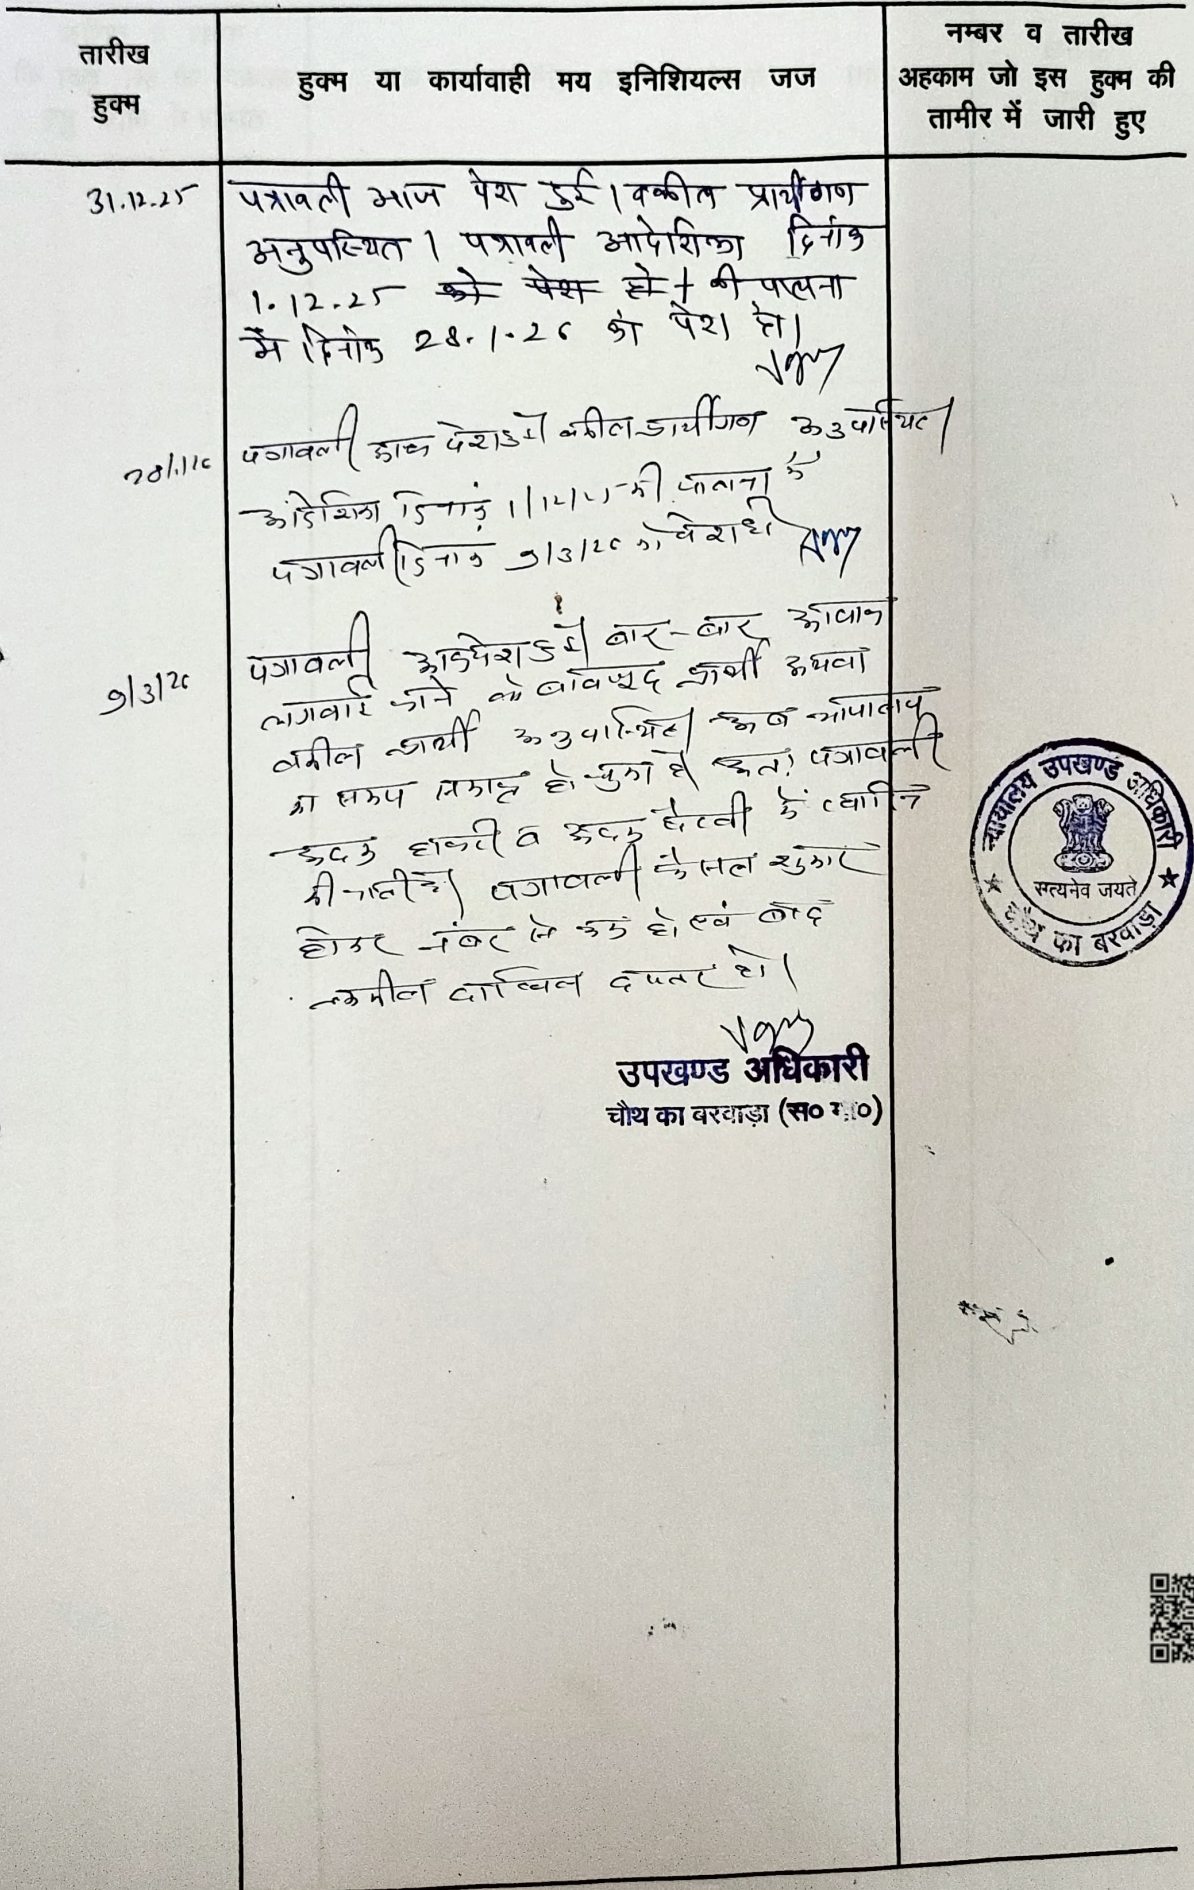 तारीख
हुक्म
हुक्म या कार्यावाही मय इनिशियल्स जज
नम्बर व तारीख
अहकाम जो इस हुक्म की
तामीर में जारी हुए
31.12.25
पत्रावली आज पेश हुई। वकील प्रार्थीगण
अनुपस्थित। पत्रावली आदेशिका दिनांक
1.12.25 को पेश हो। की पालना
में दिनांक 28.1.26 को पेश हो।
28/1/26
पत्रावली आज पेश हुई। वकील प्रार्थीगण अनुपस्थित।
आदेशिका दिनांक की पालना में
पत्रावली दिनांक 9/3/26 को पेश हो
9/3/26
पत्रावली आज पेश हुई। बार-बार आवाज
लगवाई जाने के बावजूद प्रार्थी अथवा
वकील प्रार्थी अनुपस्थित। अब न्यायालय
का समय समाप्त हो चुका है अतः पत्रावली
अदम हाजरी व अदम पैरवी में खारिज
की जाती है। पत्रावली फैसल शुमार
होकर नंबर से कम हो एवं बाद
तकमील दाखिल दफ्तर हो।
उपखण्ड अधिकारी
चौथ का बरवाड़ा (स० मा०)
न्यायालय उपखण्ड अधिकारी
सत्यमेव जयते
चौथ का बरवाड़ा